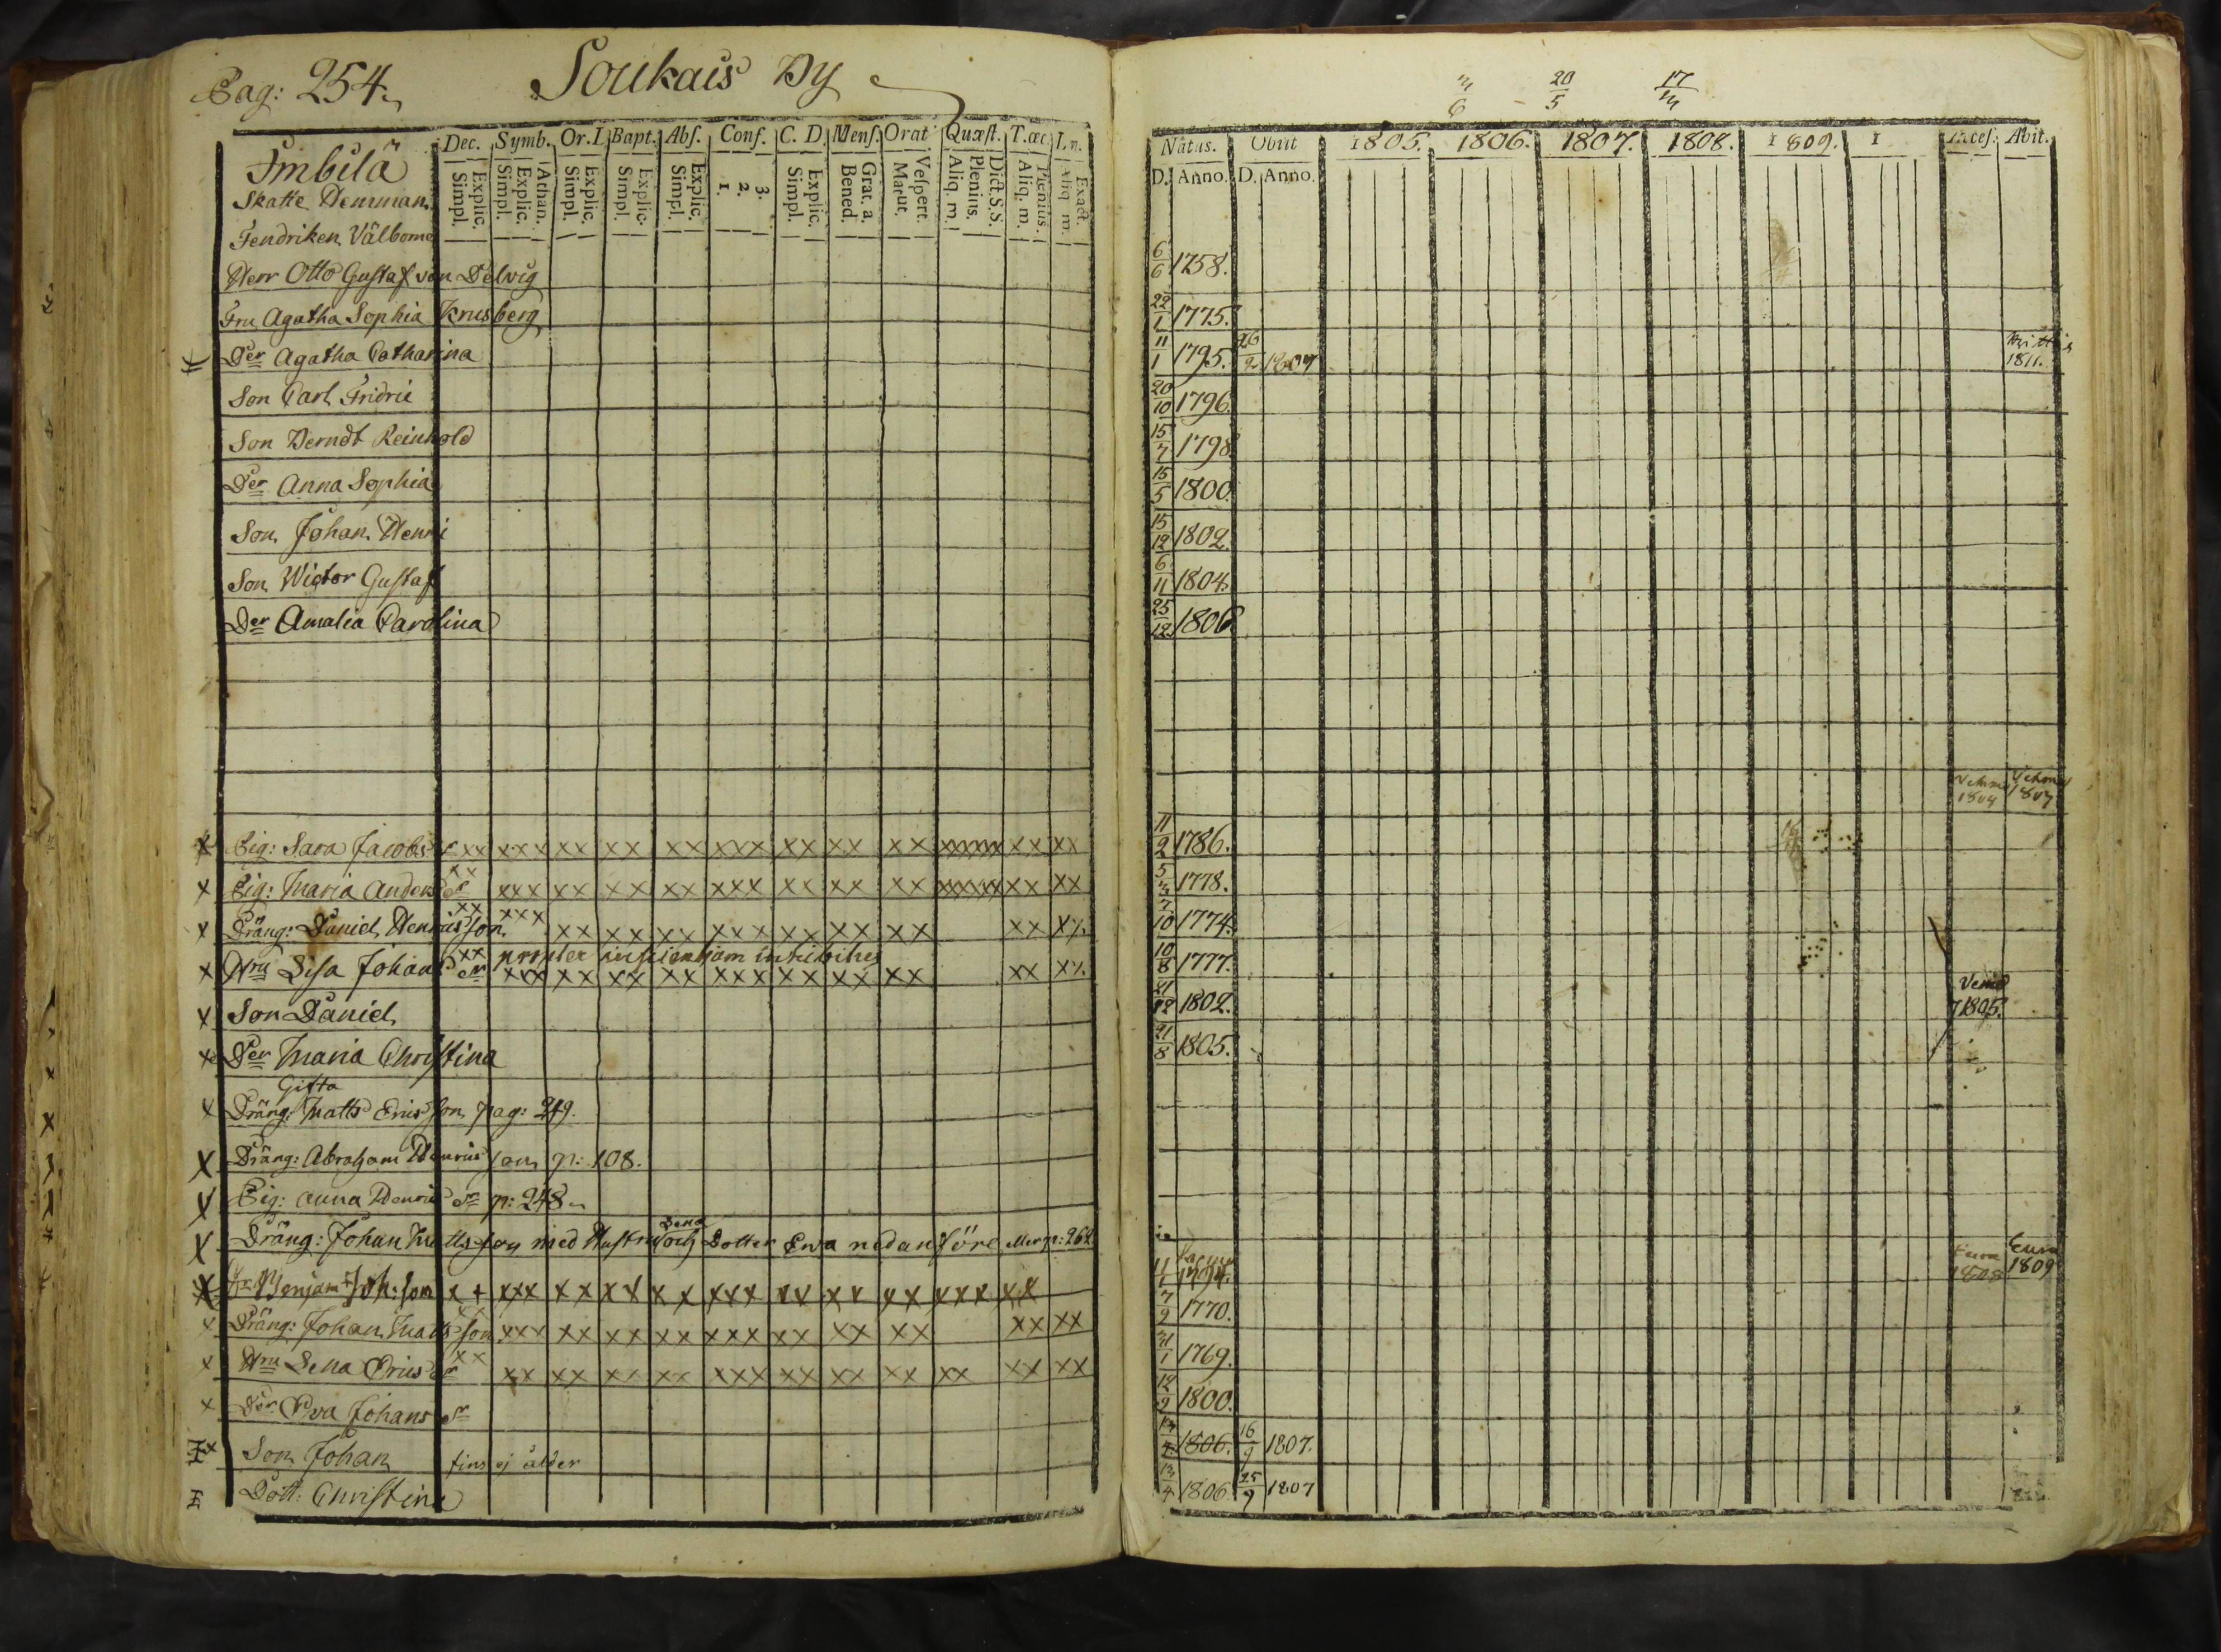 Pag: 254. Soukais By
3/6 20/5 17/3
Dec. Symb. Or. D. Bapt. Abs. Conf. C. D. Mens. Orat. Quæst. T. œc.
Explic. Simpl. Athan. Explic. Simpl. Explic. Simpl. Explic. Simpl. Explic. Simpl. 3. 2. 1. Explic. Simpl. Grat. a. Bened. Vespert. Matut. Dict. S.S. Plenius. Aliq. m. Plenius. Aliq. m. Exact. Aliq. m.
Natus. Obiit 1805. 1806. 1807. 1808. 1809. 1 Acces. Abit.
D. Anno. D. Anno.
Imbilä
Skatte Hemman
Fendriken Välborne
Herr Otto Gustaf von Delvig 6/6 1758.
Fru Agatha Sophia Krusberg 22/1 1775.
Der Agatha Catharina 11/1 1795. 26/2 1807 1811.
Son Carl Fridric 20/10 1796.
Son Berndt Reinhold 15/7 1798.
Der Anna Sophia 15/5 1800.
Son Johan Henri 15/12 1802.
Son Wictor Gustaf 6/11 1804.
Der Amalia Carolina 25/12 1806
Vehmo 1807
x Pig: Sara Jacobs dr xx xxx xx xx xx xxx xx xx xx xxxxxx xx xx 11/2 1786.
x Pig: Maria Anders dr xx xxx xx xx xx xxx xx xx xx xxxxxx xx xx 5/3 1778.
x Dräng: Daniel Henricsson xx xxx xx xx xx xxx xx xx xx xx x/. 7/10 1774.
propter inscientiam
x Hru Lisa Johans dr xx xxx xx xx xx xxx xx xx xx xx x/. 10/8 1777.
x Son Daniel 21/12 1802. Vemo 1805.
x Der Maria Christina 21/8 1805.
Gifta
x Dräng: Matts Ericsson pag: 249.
x Dräng: Abraham Henricsson p: 108.
x Pig: Anna Henrics dr p: 248
Lena
x Dräng: Johan Mattsson med Hustru och Dotter Eva nedanföre p: 262
x Dr Benjam Joh:son x + xxx xx xx xx xxx xx xx xx xxx xx Eura 1808 Eura 1809
x Dräng: Johan Mattsson xx xxx xx xx xx xxx xx xx xx xx xx 7/9 1770.
x Hru Lena Erics dr xx xx xx xx xx xxx xx xx xx xx xx xx 31/1 1769.
x Der Eva Johans dr 12/2 1800.
x Son Johan fins ej ålder 1806. 16/9 1807.
Dott: Christina 1806. 25/9 1807